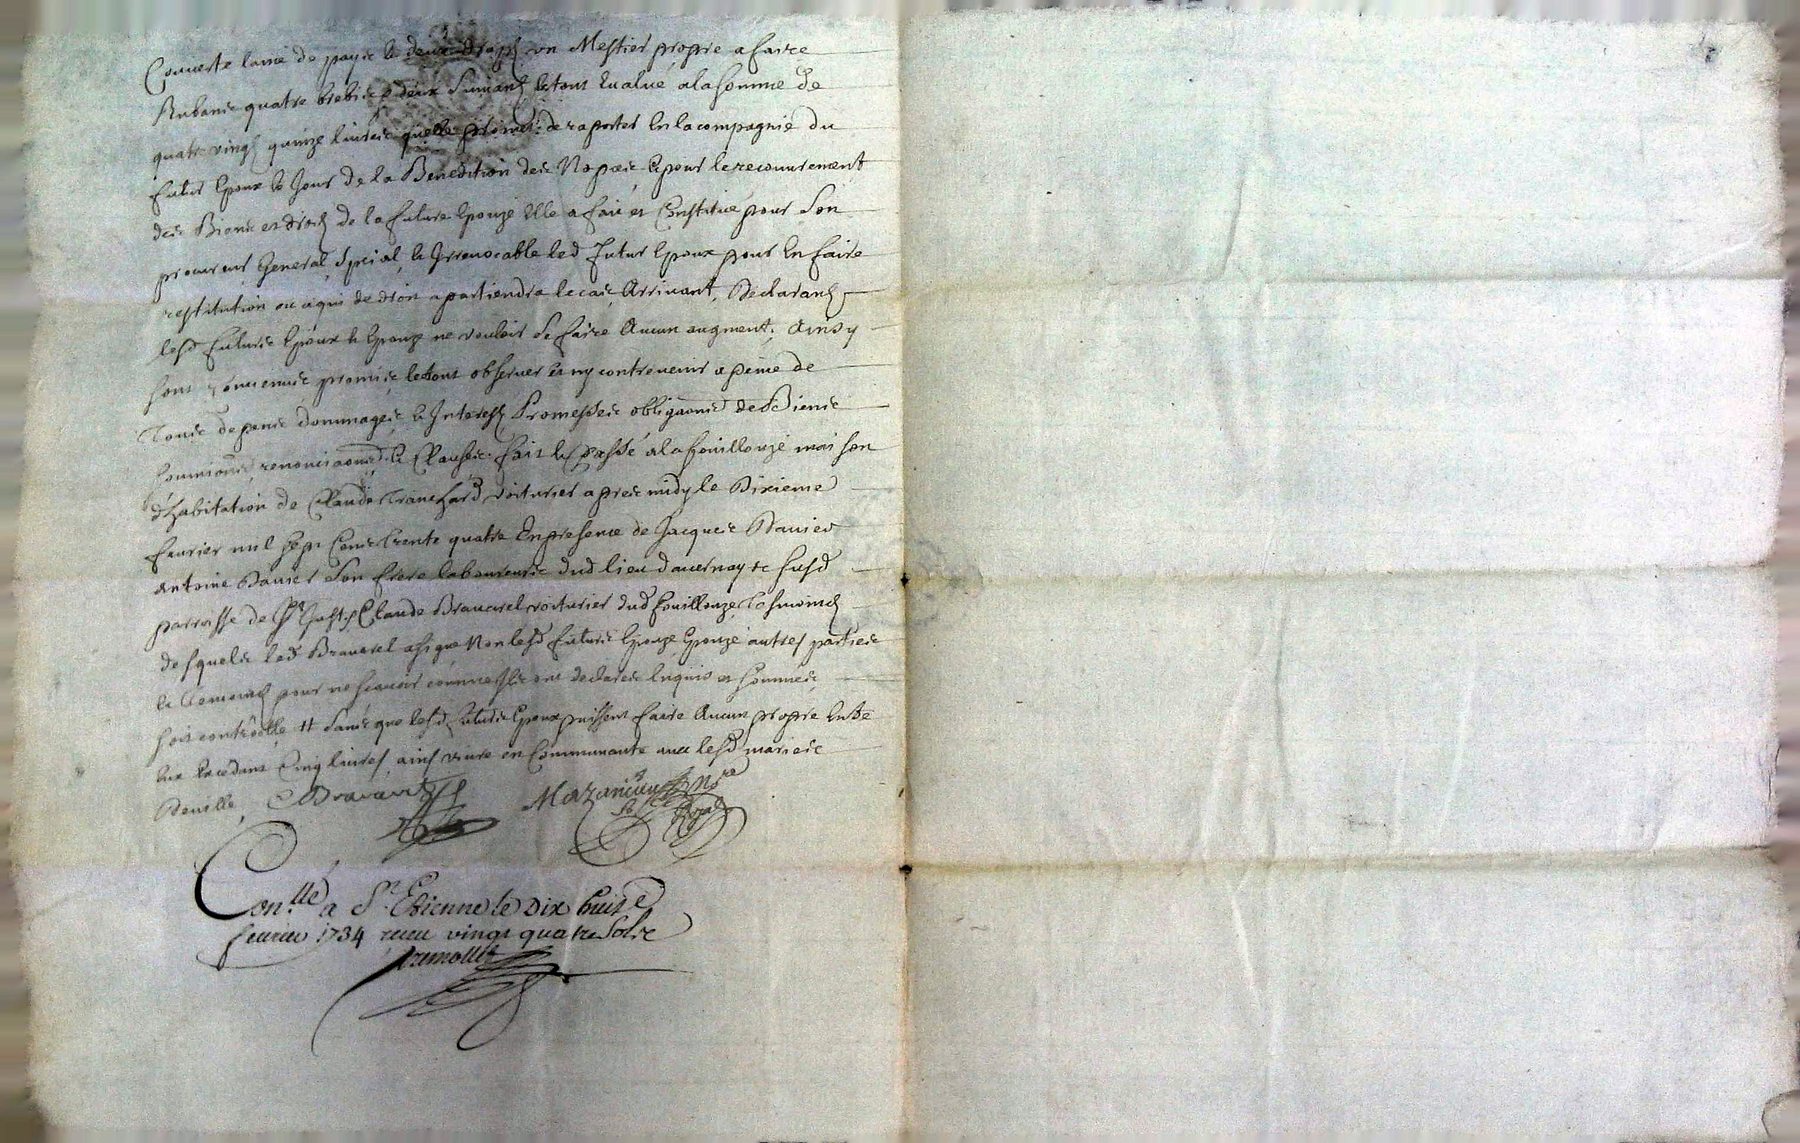 Couuerte laine de payis & deux drapz un Mestier propre a faire
Rubanc quatre brebies deux Suiuans le tout Eualué a la somme de
quatre vingt quinze liures quelle promet de raporter En la compagnie du
futur Epoux le Jour de la Benedition des Nopces Et pour le recouurement
des Biens et droits de la future Epouze Elle a fait et Constitué pour son
procureur General Special & Irreuocable led futur Epoux pour En faire
restitution ou a qui de droit apartiendra le cas Arriuant, Declarant
lesd futurs Epoux & Epouze ne vouloir se faire Aucun augment, Ainsy
sont Conuenus promis le tout obseruer Et ny contreuenir a peine de
tous depens dommages & Interest Promesses obligaons de Biens
soumions renonciaons & Clauses. fait & Passé a la fouillouze maison
d'habitation de Claude Tranchard voiturier apres midy le Dixieme
feurier mil sept Cens trente quatre En presence de Jacques
Antoine son frere laboureurs dud lieu susd
parroisse de St Just, Claude Brauarel voiturier dud fouillouze Tesmoins
desquels led Brauarel a signé Non lesd futurs Epoux Epouze autres parties
& temoins pour ne scauoir comme Ils ont declarés Enquis et sommés,
soit contrôllé tt sans que lesd futurs Epoux puissent faire Aucun propre Entre
Eux Excedant Cinq liures, ains viure en Communauté auec lesd maries
Deuille,
Con.llé a St Etienne le Dix huit
feurier 1734 receu vingt quatre sols